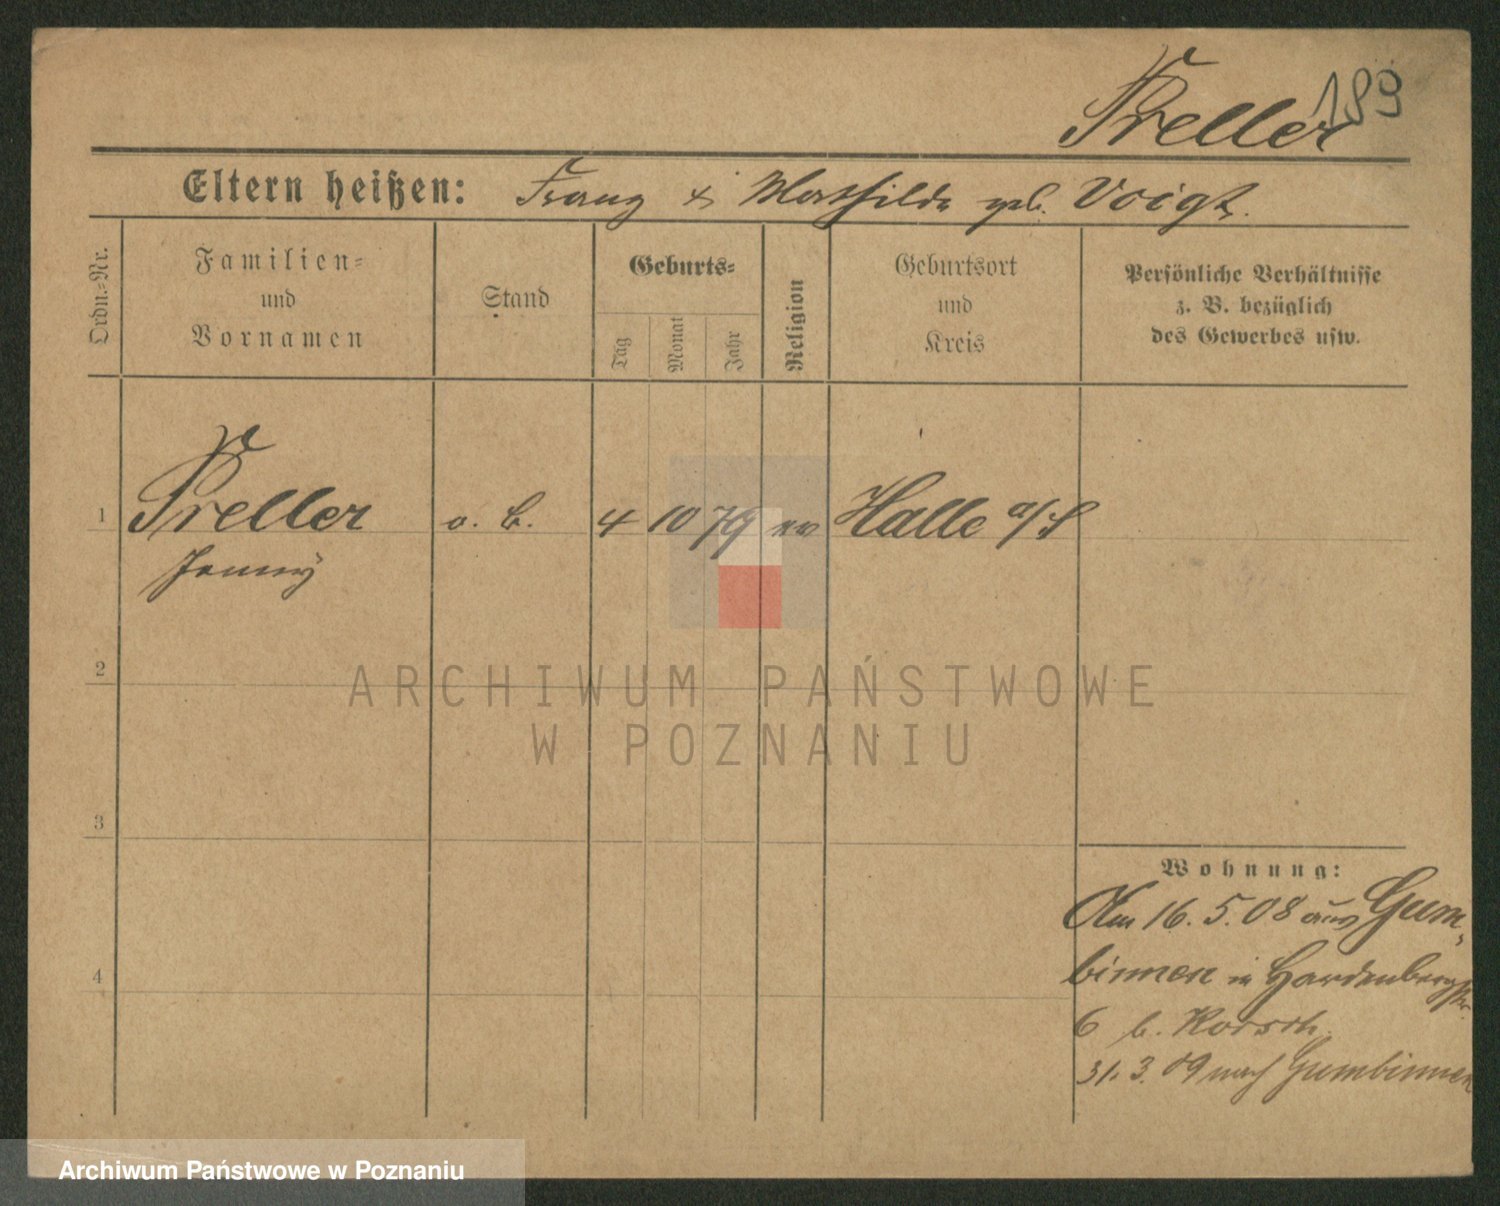 189
Preller
Eltern heißen: Franz & Mathilde geb. Voigt.
Ordn.-Nr.
Familien-
und
Vornamen
Stand
Geburts-
Tag
Monat
Jahr
Religion
Geburtsort
und
Kreis
Persönliche Verhältnisse
z. B. bezüglich
des Gewerbes usw.
1 Preller o. B. 4 10 79 ev Halle a/S
Jenny
2
3
4
Wohnung:
Am 16. 5. 08 aus Gum-
binnen in Hardenbergstr.
6 b. Korsch
31. 3. 09 nach Gumbinnen
ARCHIWUM PAŃSTWOWE
W POZNANIU
Archiwum Państwowe w Poznaniu